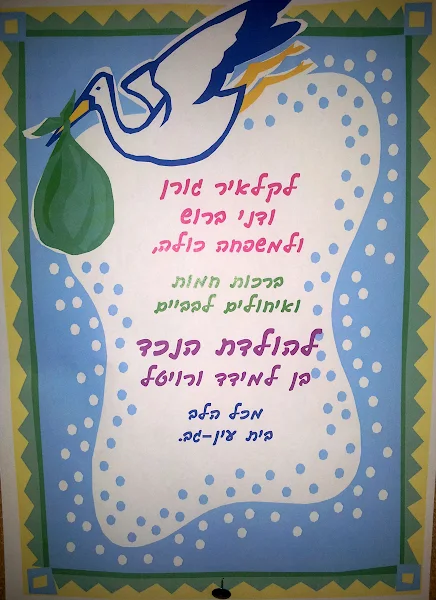 לקלאיר גורן
ודני ברוש
ולמשפחה כולה,
ברכות חמות
ואיחולים לבביים
להולדת הנכד
בן למידד ורויטל
מכל הלב
בית עין-גב.